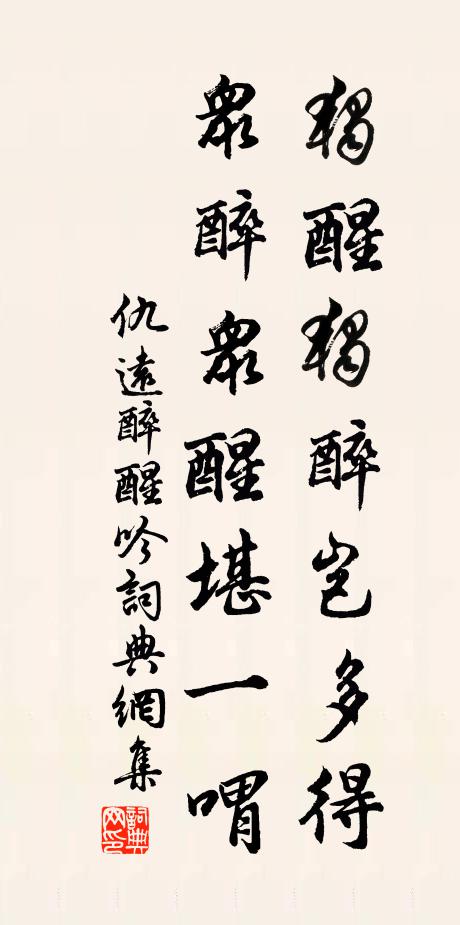 獨醒獨醉豈多得
眾醉眾醒堪一喟
仇遠醉醒吟詞典網集
詞典網印